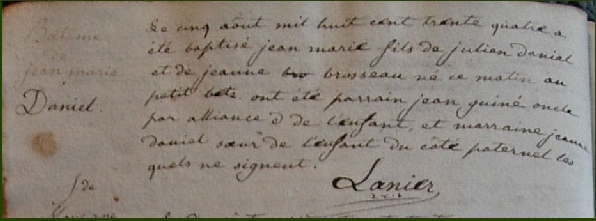 Batême
de
jean marie
Daniel.
Le cinq aout mil huit cent trente quatre a
été baptisé jean marie fils de julien daniel
et de jeanne bro brosseau né ce matin au
petit bete ont été parrain jean guiné oncle
par alliance d de l'enfant, et marraine jeanne
daniel sœur de l'enfant du coté paternel les
quels ne signent.
Lanier
de
Le